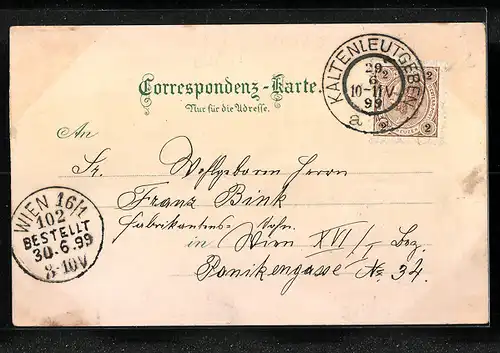 Correspondenz-Karte.
Nur für die Adresse.
KALTENLEUTGEBEN
29
6
10-11V
99
a
2
2
2
2
KREUZER
An
Sr. Wohlgeboren Herrn
Franz Bink
Fabrikantens-Sohn.
in Wien XVI/1 Bez.
Panikengasse No. 34.
WIEN 16/1
102
BESTELLT
30.6.99
8-10V